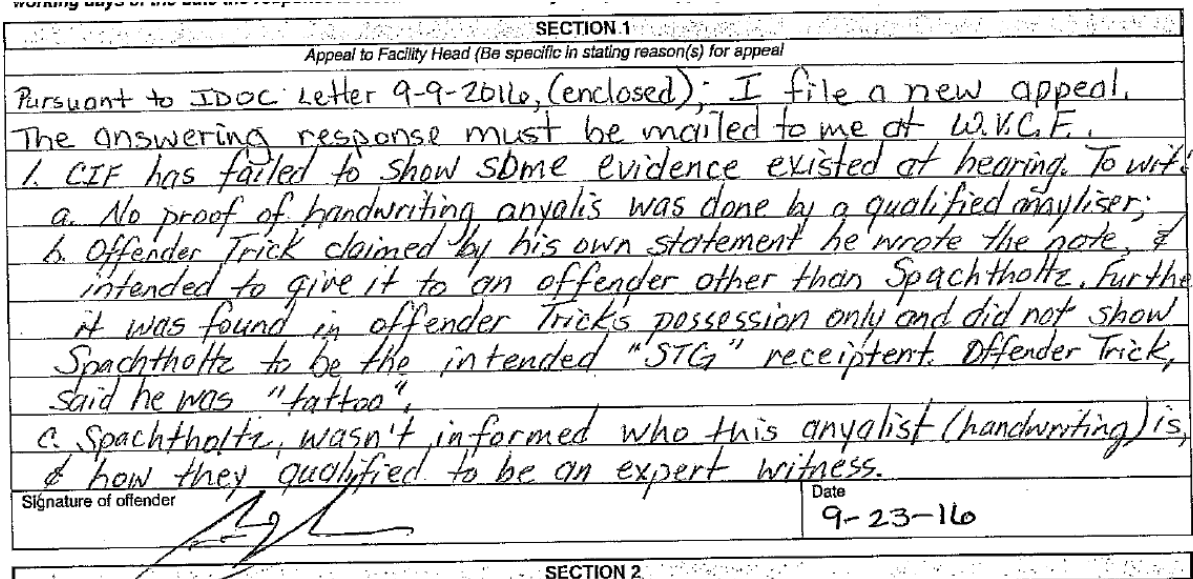 working days of the date the response
SECTION 1
Appeal to Facility Head (Be specific in stating reason(s) for appeal
Pursuant to IDOC Letter 9-9-2016, (enclosed); I file a new appeal.
The answering response must be mailed to me at W.V.C.F..
1. CIF has failed to show some evidence existed at hearing. To wit:
a. No proof of handwriting anyalis was done by a qualified anyliser;
b. Offender Trick claimed by his own statement he wrote the note, &
intended to give it to an offender other than Spachtholtz. Furthe
it was found in offender Trick's possession only and did not show
Spachtholtz to be the intended "STG" receiptent. Offender Trick,
said he was "tattoo".
c. Spachtholtz, wasn't informed who this anyalist (handwriting) is,
& how they qualified to be an expert witness.
Signature of offender
Date
9-23-16
SECTION 2